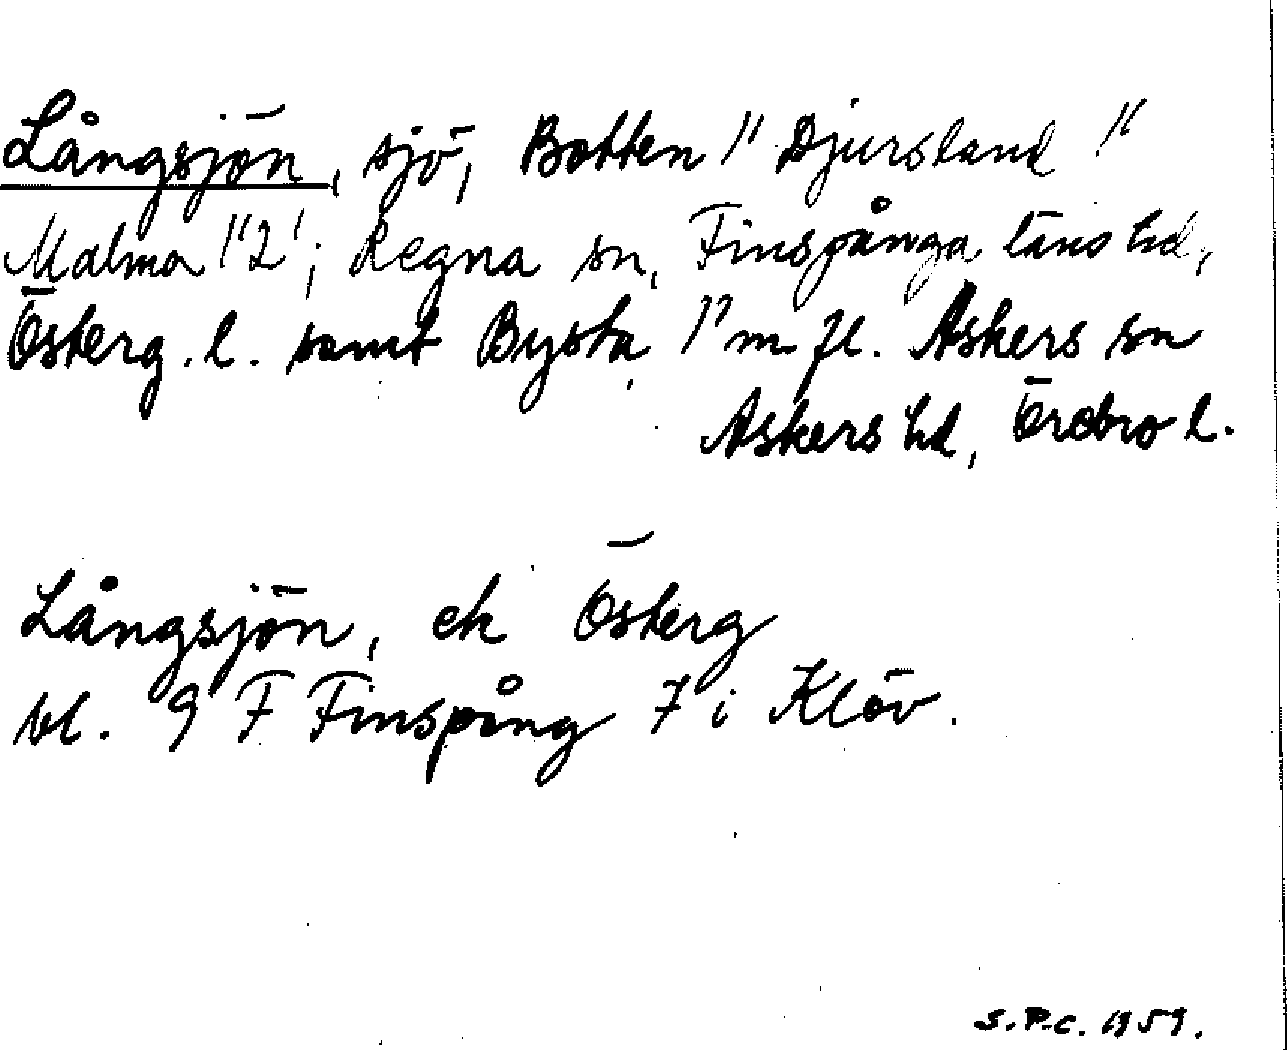 Långsjön, sjö, Botten 1" Djursland 1"
Malma 1"2'; Regna sn, Finspånga läns hd,
Österg. l. samt Bysta 1" m fl. Askers sn
Askers hd, Örebro l.
Långsjön, ek Österg
bl. 9 F Finspång 7 i Klöv.
S.P.C. 1959.